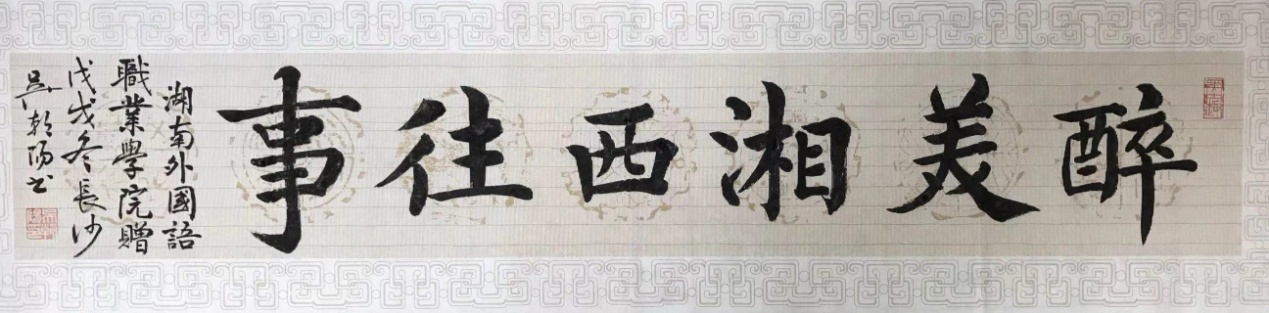 醉美湘西往事
湖南外國語
職業學院贈
戊戌冬長沙